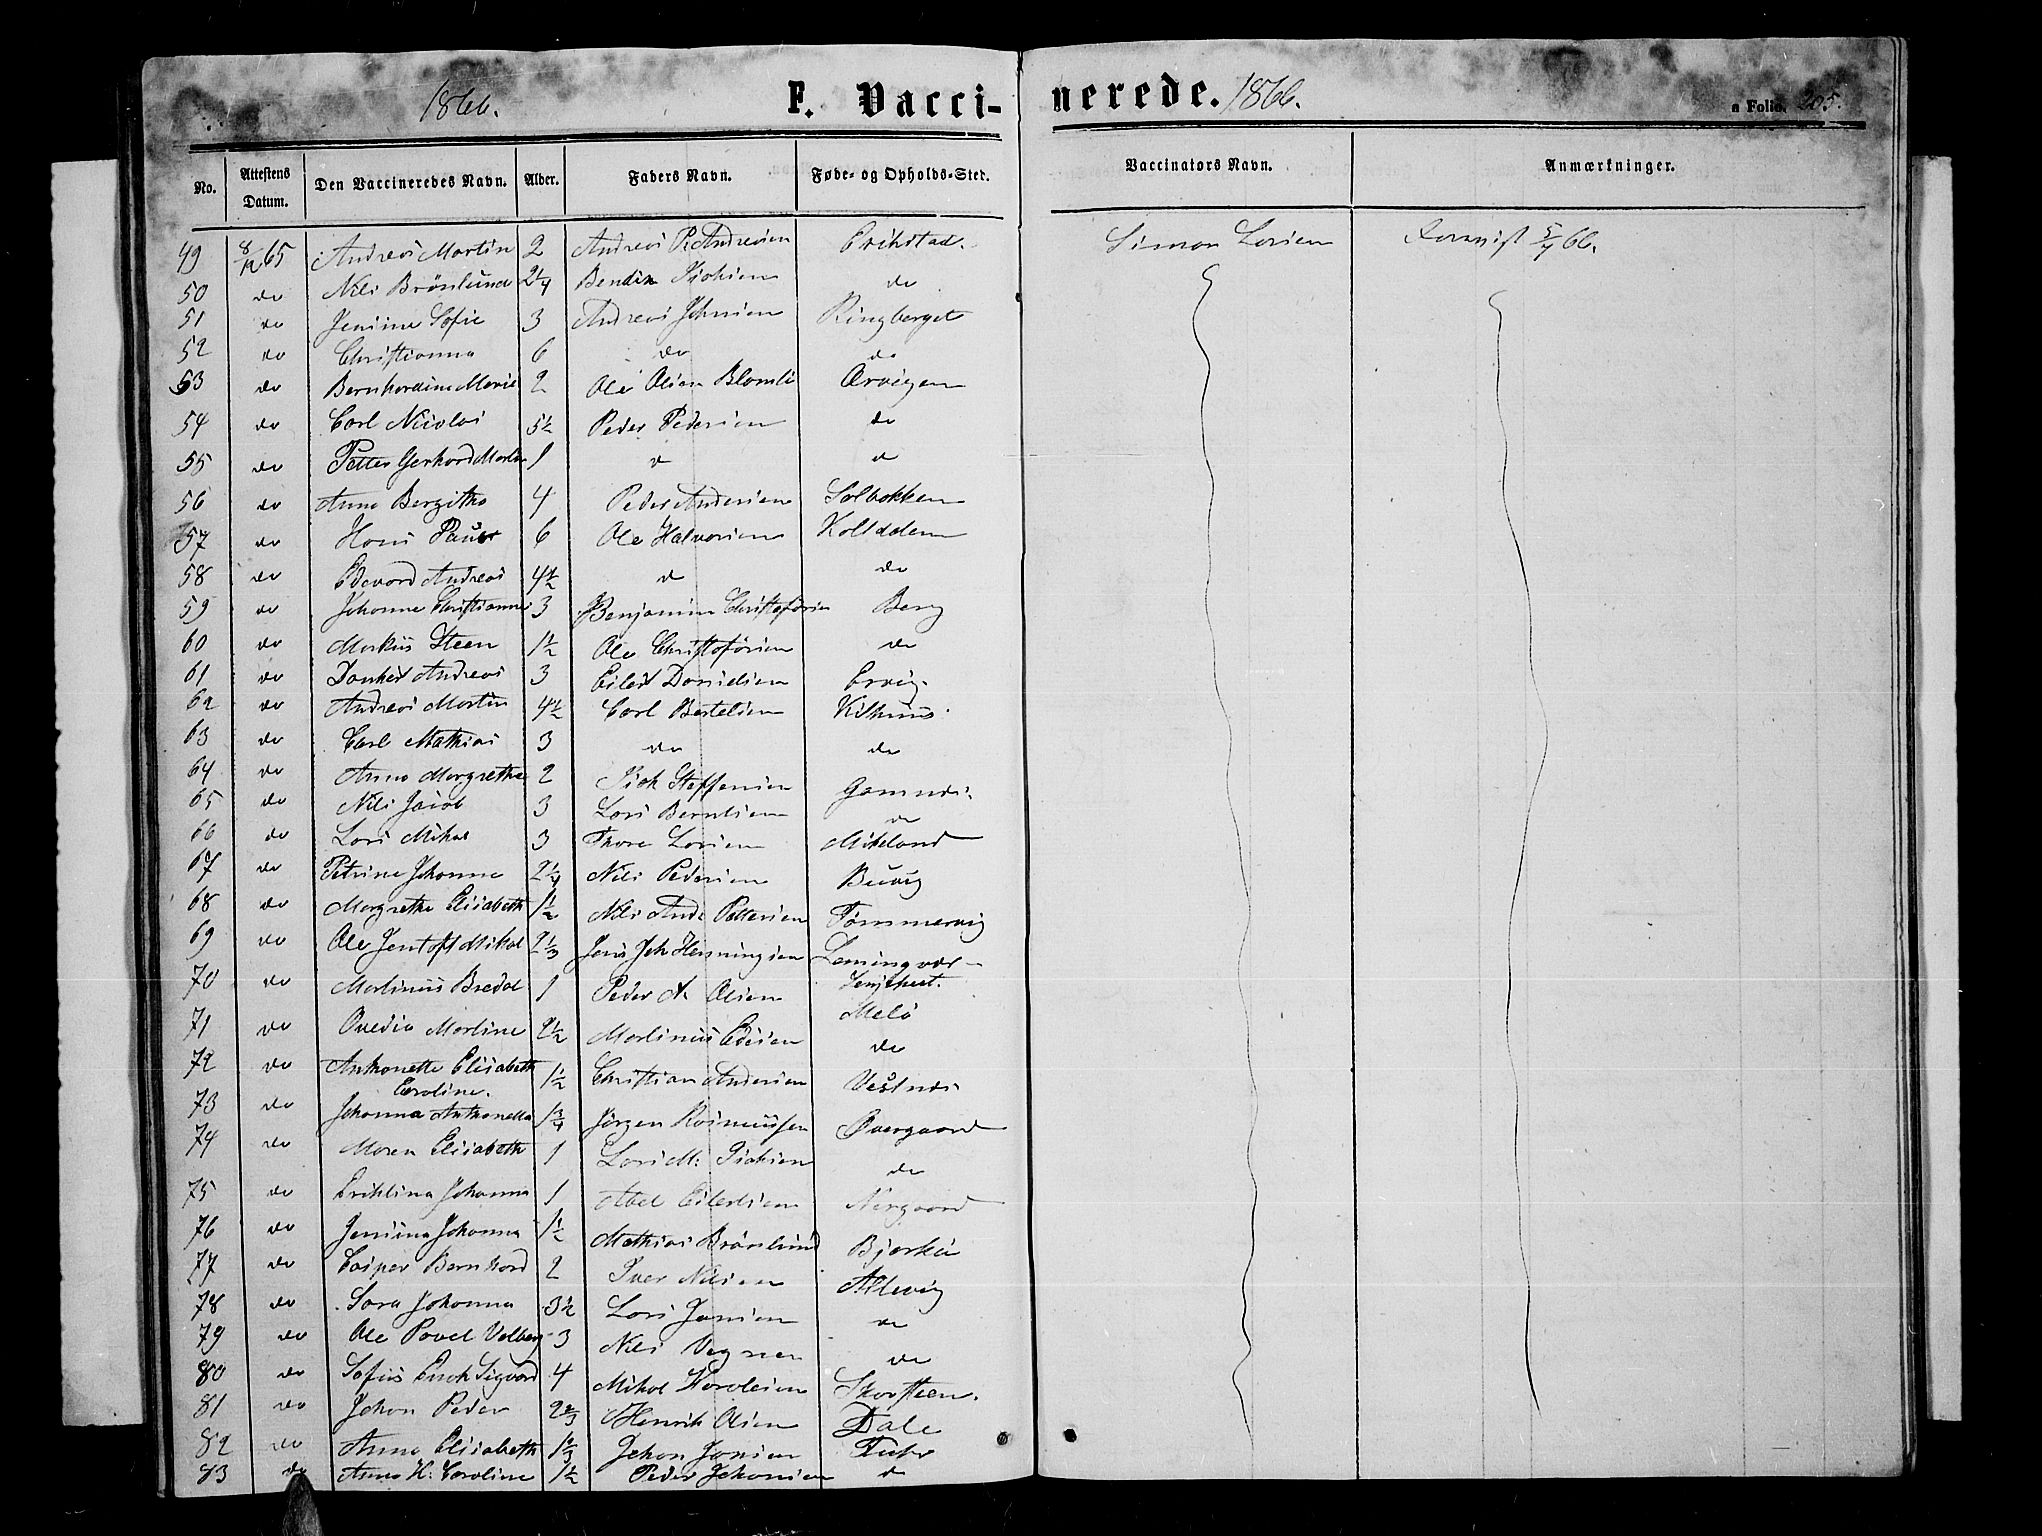 1866. F. Vacci-nerede. 1866. a Folio. 205.
No. Attestens Datum. Den Vaccineredes Navn. Alder. Faders Navn. Føde- og Opholds-Sted. Vaccinators Navn. Anmærkninger.
49 8/12 65 Andreas Martin 2 Andreas P. Andresen Erikstad. Simon Larsen 5/7 66.
50 do Nils Brönlund 2 1/4 Bendix Isaksen do
51 do Jensine Sofie 3 Andreas Johnsen Ringberget
52 do Christianna 6 do do
53 do Bernhardine Marie 2 Ole Olsen Blomli Ørvigen
54 do Carl Nicolai 5 1/2 Peder Pedersen do
55 do Petter Gerhard Martin 1 d d
56 do Anne Bergitha 4 Peder Andersen Solbakken
57 do Hans Paul 6 Ole Halvorsen Koltdalen
58 do Edevard Andreas 4 1/2 d do
59 do Johanna Christianna 3 Benjamin Christofersen Berg
60 do Markus Steen 1 1/2 Ole Christofersen do
61 do Dankert Andreas 3 Eilert Danielsen Ervig.
62 do Andreas Martin 4 1/2 Carl Bertelsen Kilhuus.
63 do Carl Mathias 3 do do
64 do Anna Margrethe 2 Isak Steffensen Gamnes.
65 do Nils Jacob 3 Lars Berntsen do
66 do Lars Mikal 3 Thore Larsen Mikeland
67 do Petrine Johanna 2 1/4 Nils Pedersen Buvig
68 do Margrethe Elisabeth 1 1/2 Nils And: Pettersen Tømmervig
69 do Ole Jentoft Mikal 2 1/3 Jens Joh Henningsen Lemingvær
70 do Martinus Bredal 1 Peder N. Olsen
71 do Ovedia Martine 2 1/2 Martinus Edisen Melø
72 do Anthonette Elisabeth 1 1/2 Christian Andersen do
Caroline. Vestnes
73 do Johanna Anthonetta 1 3/4 Jörgen Rasmussen Øvergaard
74 do Maren Elisabeth 1 Lars M: Isaksen do
75 do Eriklina Johanna 1 Abel Eilertsen Nergaard
76 do Jensina Johanna 1 1/2 Mathias Brönlund Bjerkli
77 do Casper Bernhard 2 Iver Nilsen Allevig
78 do Sara Johanna 3 1/2 Lars Jensen do
79 do Ole Povel Volberg 3 Nils Vegnen do
80 do Sofus Enok Sigvard 4 Mikal Karolsen Skorsteen.
81 do Johan Peder 2 2/3 Henrik Olsen Dale
82 do do Anna Elisabeth 1 2/3 Johan Jonsen
83 do Anna H: Caroline 1 1/2 Peder Johansen d